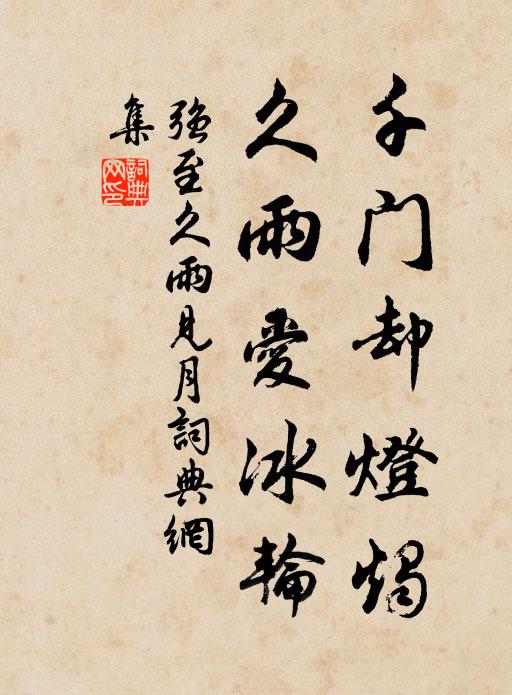 千门却燈燭
久雨愛冰輪
强至久雨見月詞典網
集
詞典
网印